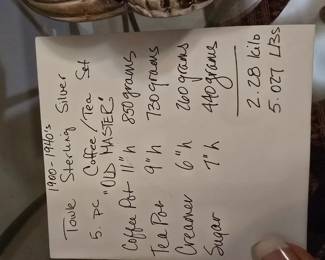 1900-1940's
Towle Sterling Silver
5. pc Coffee/Tea Set
"OLD MASTER"
Coffee Pot 11" h 850 grams
Tea Pot 9" h 730 grams
Creamer 6" h 260 grams
Sugar 7" h 440 grams
2.28 kilo
5.027 LBs